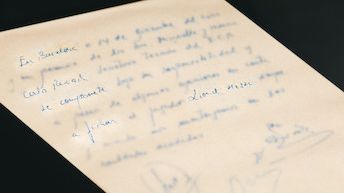 En Barcelona a 14 de diciembre del
y en presencia de los Minguella y
Carles Rexach Secretario Técnico del F.C.B
se compromete bajo su responsabilidad y
a pesar de algunas opiniones en contra
a fichar el jugador Lionel Messi
y cuando nos mantengamos en las
cantidades acordadas